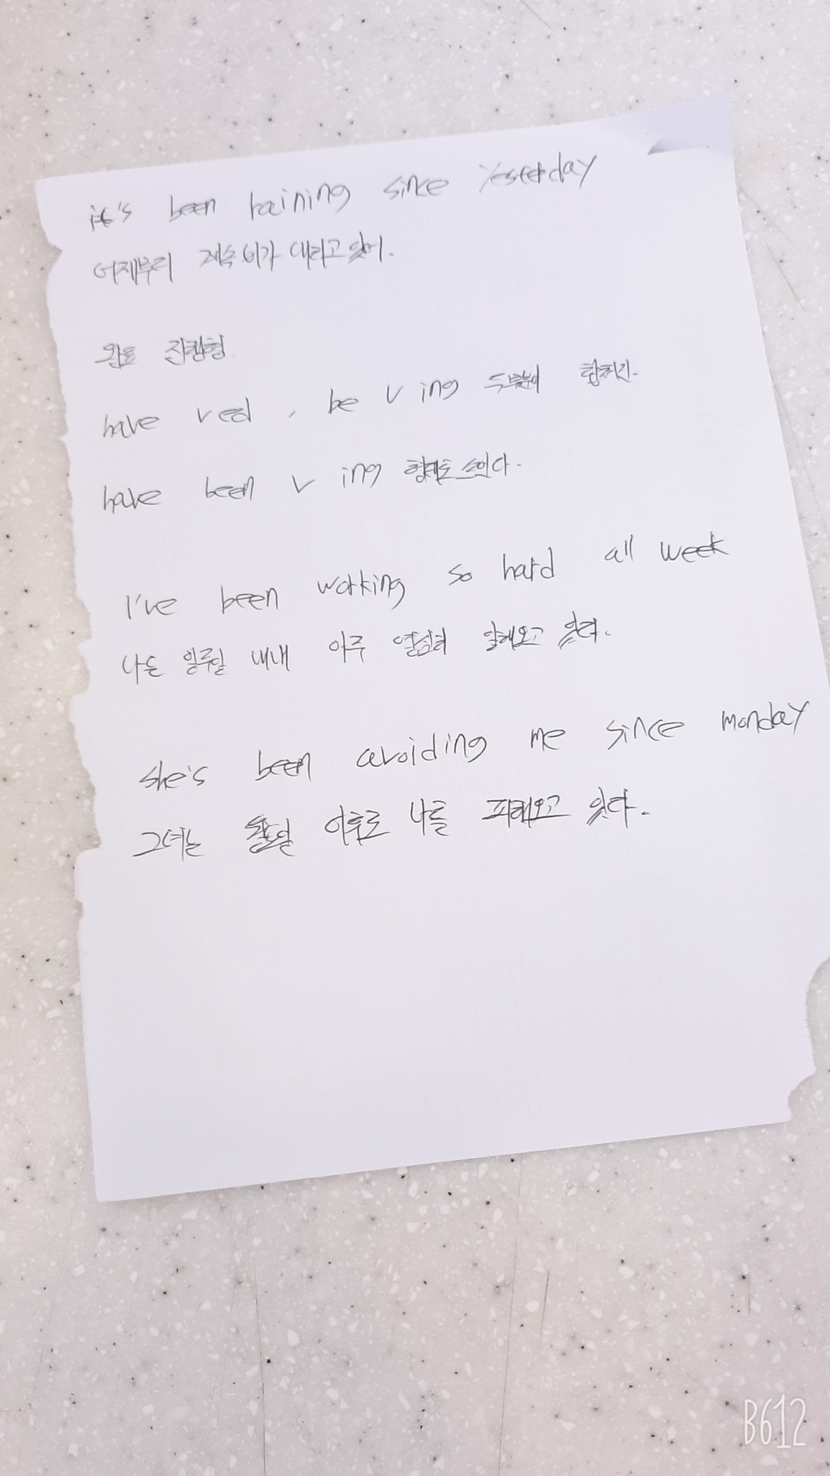 it's been raining since yesterday
어제부터 계속 비가 내리고 있어.
완료 진행형.
have v ed, be v ing 두분이 합쳐진.
have been v ing 형태로 쓰인다.
I've been working so hard all week
나는 일주일 내내 아주 열심히 일해오고 있어.
she's been avoiding me since monday
그녀는 월요일 이후로 나를 피해오고 있다.
B612